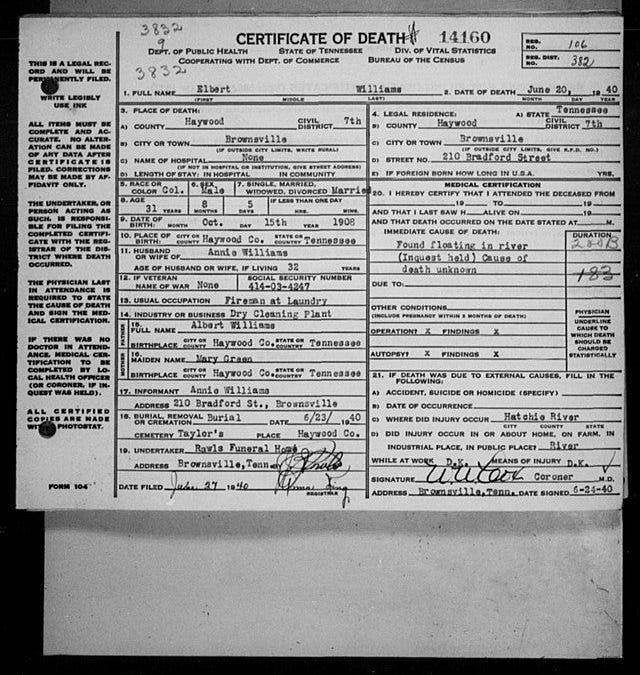 3832
9
3832
CERTIFICATE OF DEATH # 14160
DEPT. OF PUBLIC HEALTH STATE OF TENNESSEE DIV. OF VITAL STATISTICS
COOPERATING WITH DEPT. OF COMMERCE BUREAU OF THE CENSUS
REG. NO. 106
REG. DIST. NO. 382
THIS IS A LEGAL RECORD AND WILL BE PERMANENTLY FILED.
WRITE LEGIBLY
USE INK
ALL ITEMS MUST BE COMPLETE AND ACCURATE. NO ALTERATION CAN BE MADE OF ANY DATA AFTER CERTIFICATE IS FILED. CORRECTIONS MAY BE MADE BY AFFIDAVIT ONLY.
THE UNDERTAKER, OR PERSON ACTING AS SUCH, IS RESPONSIBLE FOR FILING THE COMPLETED CERTIFICATE WITH THE REGISTRAR OF THE DISTRICT WHERE DEATH OCCURRED.
THE PHYSICIAN LAST IN ATTENDANCE IS REQUIRED TO STATE THE CAUSE OF DEATH AND SIGN THE MEDICAL CERTIFICATION.
IF THERE WAS NO DOCTOR IN ATTENDANCE, MEDICAL CERTIFICATION TO BE COMPLETED BY LOCAL HEALTH OFFICER (OR CORONER, IF INQUEST WAS HELD).
ALL CERTIFIED COPIES ARE MADE WITH PHOTOSTAT.
FORM 104
1. FULL NAME Elbert Williams
(FIRST) MIDDLE LAST)
2. DATE OF DEATH June 20, 1940
MONTH DAY YEAR
3. PLACE OF DEATH:
A) COUNTY Haywood CIVIL DISTRICT 7th
B) CITY OR TOWN Brownsville
(IF OUTSIDE CITY LIMITS, WRITE RURAL)
C) NAME OF HOSPITAL None
(IF NOT IN HOSPITAL OR INSTITUTION, GIVE STREET ADDRESS)
D) LENGTH OF STAY: IN HOSPITAL IN COMMUNITY
4. LEGAL RESIDENCE: A) STATE Tennessee
B) COUNTY Haywood CIVIL DISTRICT 7th
C) CITY OR TOWN Brownsville
(IF OUTSIDE CITY LIMITS, GIVE R.F.D. NO.)
D) STREET NO. 210 Bradford Street
E) IF FOREIGN BORN HOW LONG IN U.S.A. YRS.
5. RACE OR COLOR Col. 6. SEX Male 7. SINGLE, MARRIED, WIDOWED, DIVORCED Married
8. AGE 31 YEARS 8 MONTHS 5 DAYS IF LESS THAN ONE DAY HRS. MINS.
9. DATE OF BIRTH: Oct. MONTH 15th DAY 1908 YEAR
10. PLACE OF BIRTH CITY OR COUNTY Haywood Co. STATE OR COUNTRY Tennessee
11. HUSBAND OR WIFE OF Annie Williams
AGE OF HUSBAND OR WIFE, IF LIVING 32 YEARS
12. IF VETERAN NAME OF WAR None SOCIAL SECURITY NUMBER 414-03-4247
13. USUAL OCCUPATION Fireman at Laundry
14. INDUSTRY OR BUSINESS Dry Cleaning Plant
FATHER
15. FULL NAME Albert Williams
BIRTHPLACE CITY OR COUNTY Haywood Co. STATE OR COUNTRY Tennessee
MOTHER
16. MAIDEN NAME Mary Green
BIRTHPLACE CITY OR COUNTY Haywood Co. STATE OR COUNTRY Tennessee
17. INFORMANT Annie Williams
ADDRESS 210 Bradford St., Brownsville
18. BURIAL, REMOVAL OR CREMATION Burial DATE 6/23/ 1940
CEMETERY Taylor's PLACE Haywood Co.
19. UNDERTAKER Rawls Funeral Home
ADDRESS Brownsville, Tenn.
DATE FILED June 27 1940
REGISTRAR
MEDICAL CERTIFICATION
20. I HEREBY CERTIFY THAT I ATTENDED THE DECEASED FROM
19 TO 19
AND THAT I LAST SAW H ALIVE ON 19
AND THAT DEATH OCCURRED ON THE DATE STATED AT M.
IMMEDIATE CAUSE OF DEATH: DURATION
Found floating in river
(Inquest held) Cause of
death unknown
183
DUE TO:
OTHER CONDITIONS
(INCLUDE PREGNANCY WITHIN 3 MONTHS OF DEATH)
OPERATION? X FINDINGS X
AUTOPSY? X FINDINGS X
PHYSICIAN
UNDERLINE CAUSE TO WHICH DEATH SHOULD BE CHARGED STATISTICALLY
21. IF DEATH WAS DUE TO EXTERNAL CAUSES, FILL IN THE FOLLOWING:
A) ACCIDENT, SUICIDE OR HOMICIDE (SPECIFY)
B) DATE OF OCCURRENCE
C) WHERE DID INJURY OCCUR Hatchie River
CITY COUNTY STATE
D) DID INJURY OCCUR IN OR ABOUT HOME, ON FARM, IN
INDUSTRIAL PLACE, IN PUBLIC PLACE? River
WHILE AT WORK D.K. MEANS OF INJURY D.K.
SIGNATURE Coroner M.D.
ADDRESS Brownsville, Tenn. DATE SIGNED 6-24-40